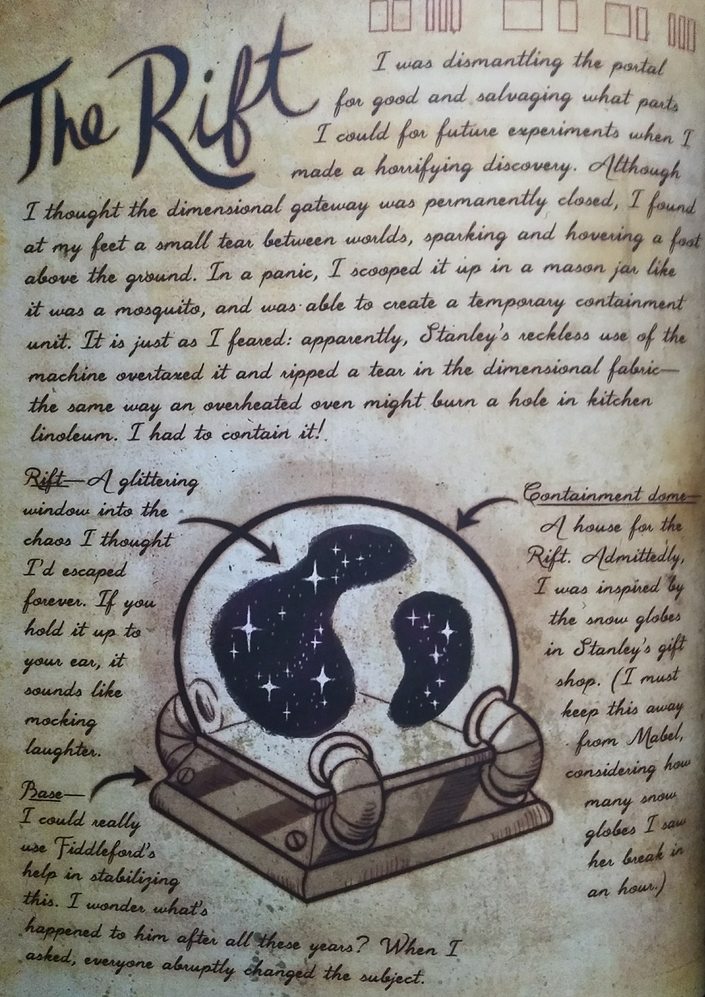 The Rift
I was dismantling the portal
for good and salvaging what parts
I could for future experiments when I
made a horrifying discovery. Although
I thought the dimensional gateway was permanently closed, I found
at my feet a small tear between worlds, sparking and hovering a foot
above the ground. In a panic, I scooped it up in a mason jar like
it was a mosquito, and was able to create a temporary containment
unit. It is just as I feared: apparently, Stanley's reckless use of the
machine overtaxed it and ripped a tear in the dimensional fabric—
the same way an overheated oven might burn a hole in kitchen
linoleum. I had to contain it!
Rift— A glittering
window into the
chaos I thought
I'd escaped
forever. If you
hold it up to
your ear, it
sounds like
mocking
laughter.
Containment dome—
A house for the
Rift. Admittedly,
I was inspired by
the snow globes
in Stanley's gift
shop. (I must
keep this away
from Mabel,
considering how
many snow
globes I saw
her break in
an hour.)
Base—
I could really
use Fiddleford's
help in stabilizing
this. I wonder what's
happened to him after all these years? When I
asked, everyone abruptly changed the subject.